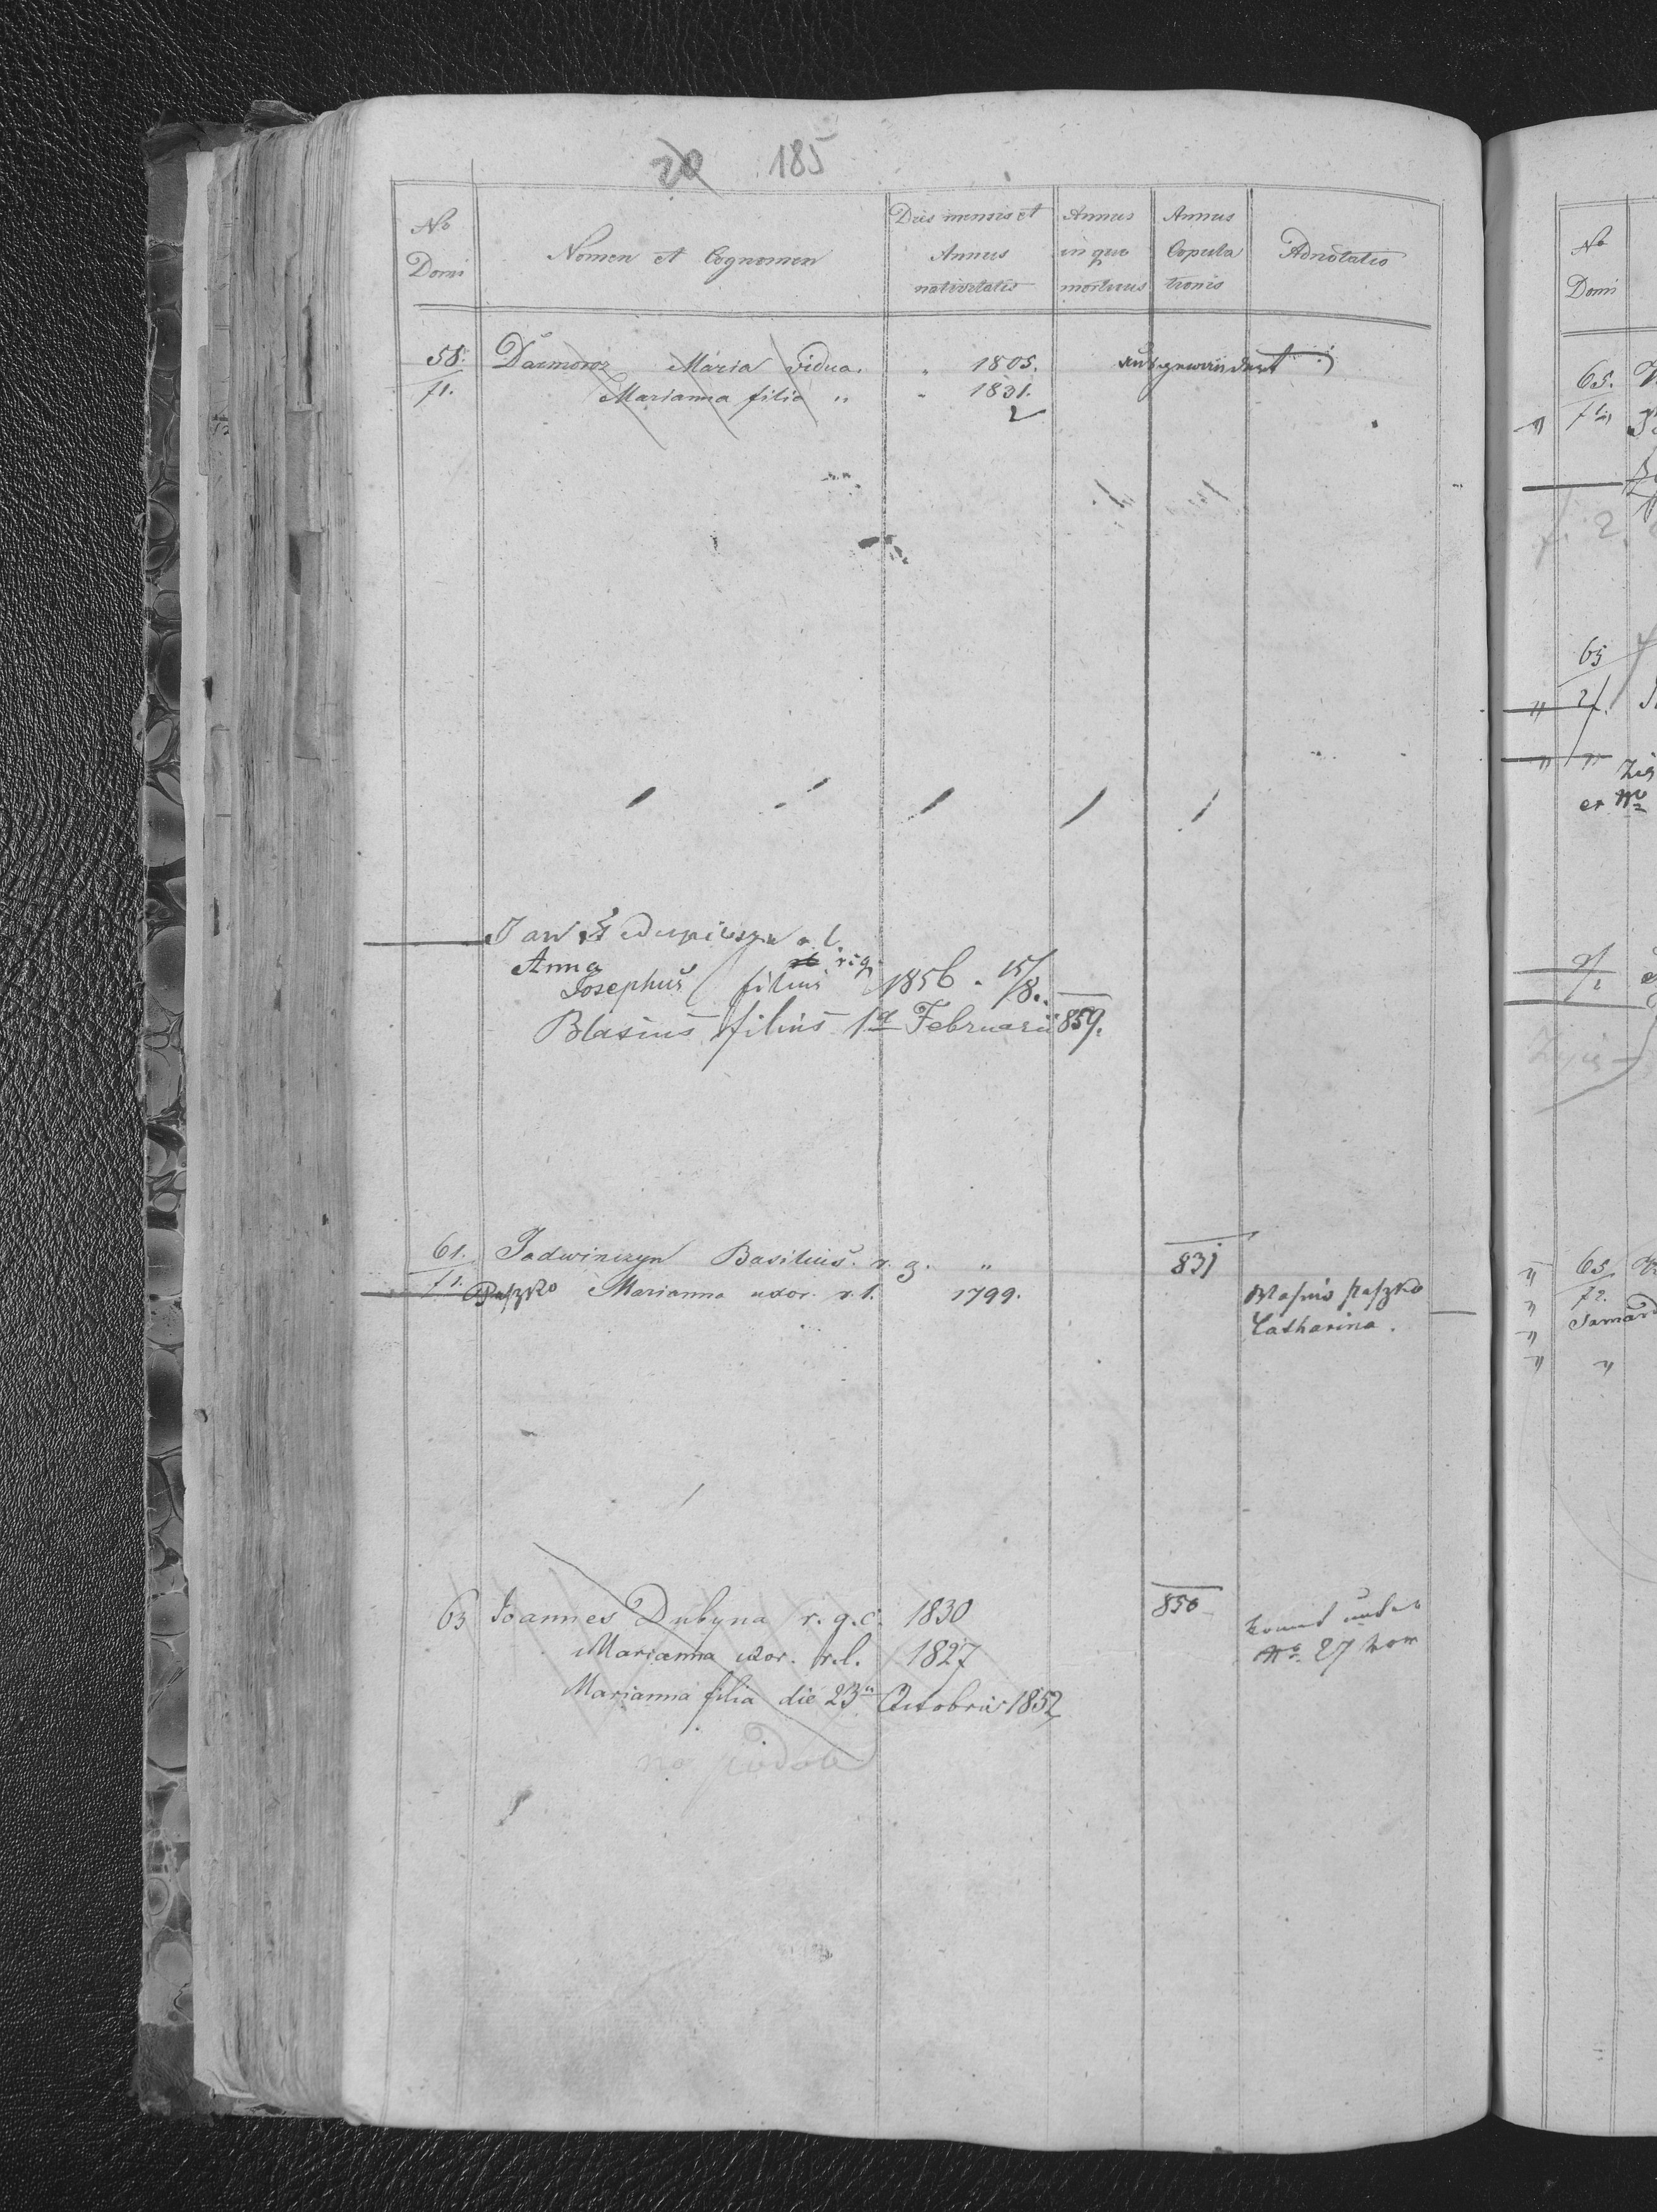 20 185
No Domi
Nomen et Cognomen
Dies mensis et Annus nativitatis
Annus in quo mortuus
Annus Copulationis
Adnotatio
58. Darmoroz Maria vidua. " 1805. ausgewandert
f1. Marianna filia " " 1831.
2
Jan r. l.
Anna r. g.
Josephus filius 1856. 15/8.
Blasius filius 1a Februarii 859.
61. Jadwinczyn Basilius. r. g. " 831
f1. Paszko Marianna uxor. r. l. 1799. Blasius Paszko
Catharina.
63 Joannes Dubyna r. g. c. 1830 850
Marianna uxor. r. l. 1827 No. 27 vor
Marianna filia die 23a Octobris 1852
No Domi
65.
f1
f. 2.
65
2f.
"
et
65.
f2.